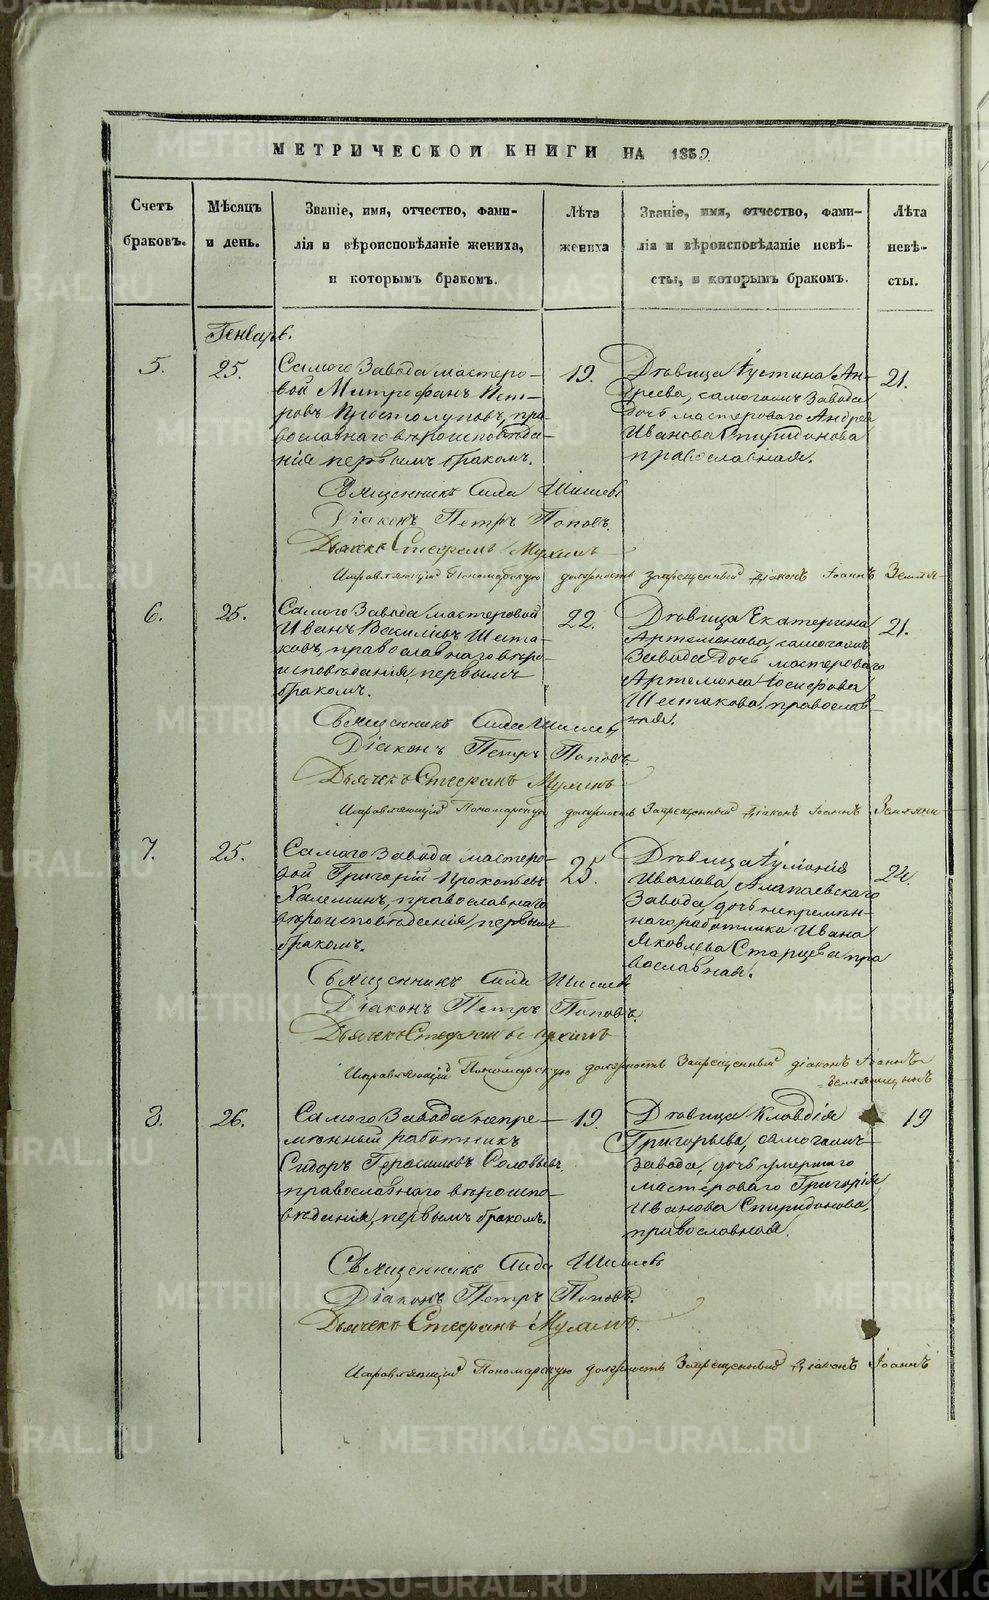 МЕТРИЧЕСКОЙ КНИГИ НА 1859.
Счетъ
браковъ.
Мѣсяцъ
и день.
Званіе, имя, отчество, фами-
лія и вѣроисповѣданіе жениха,
и которымъ бракомъ.
Лѣта
жениха
Званіе, имя, отчество, фами-
лія и вѣроисповѣданіе невѣ-
сты, и которымъ бракомъ.
Лѣта
невѣ-
сты.
Генварь.
5.
25.
Самого Завода мастеро-
вой Митрофанъ Пет-
ровъ Простолуповъ, пра
вославнаго вѣроисповѣда-
нія первымъ бракомъ.
19.
Дѣвица Іустина Ан-
дреева, самогожъ Завода
дочь мастероваго Андрея
Иванова Спиридонова
православная.
21.
Священникъ Сила Шишевъ
Діаконъ Петръ Поповъ.
Дьячекъ Стефанъ
Исправляющій Пономарскую должность запрещенный діаконъ Іоаннъ Землян-
6.
25.
Самого Завода мастеровой
Иванъ Васильевъ Шеста-
ковъ, православнаго вѣро-
исповѣданія, первымъ
бракомъ.
22.
Дѣвица Екатерина
Артемонова, самогожъ
Завода дочь мастероваго
Артемона Іосифова
Шестакова, православ
ная.
21.
Священникъ Сила Шишевъ
Діаконъ Петръ Поповъ.
Дьячекъ Стефанъ
Исправляющій Пономарскую должность Запрещенный діаконъ Іоаннъ Земляни
7.
25.
Самого Завода мастеро-
вой Григорій Прокопьевъ
православнаго
вѣроисповѣданія, первымъ
бракомъ.
25.
Дѣвица
Иванова Алапаевскаго
Завода, дочь непремѣн-
наго работника Ивана
Яковлева Старцева пра
вославная.
Священникъ Сила Шишевъ
Діаконъ Петръ Поповъ.
Дьячекъ Стефанъ
Исправляющій Пономарскую должность Запрещенный діаконъ Іоаннъ
Земляницынъ
8.
26.
Самого Завода непре-
мѣнный работникъ
Сидоръ Герасимовъ Соловьевъ,
православнаго вѣроиспо-
вѣданія, первымъ бракомъ.
19.
Дѣвица Клавдія
Григорьева, самогожъ
Завода, дочь умершаго
мастероваго Григорія
Иванова Спиридонова,
православная.
19
Священникъ Сила Шишевъ
Діаконъ Петръ Поповъ.
Дьячекъ Стефанъ
Исправляющій Пономарскую должность Запрещенный діаконъ Іоаннъ
METRIKI.GASO-URAL.RU